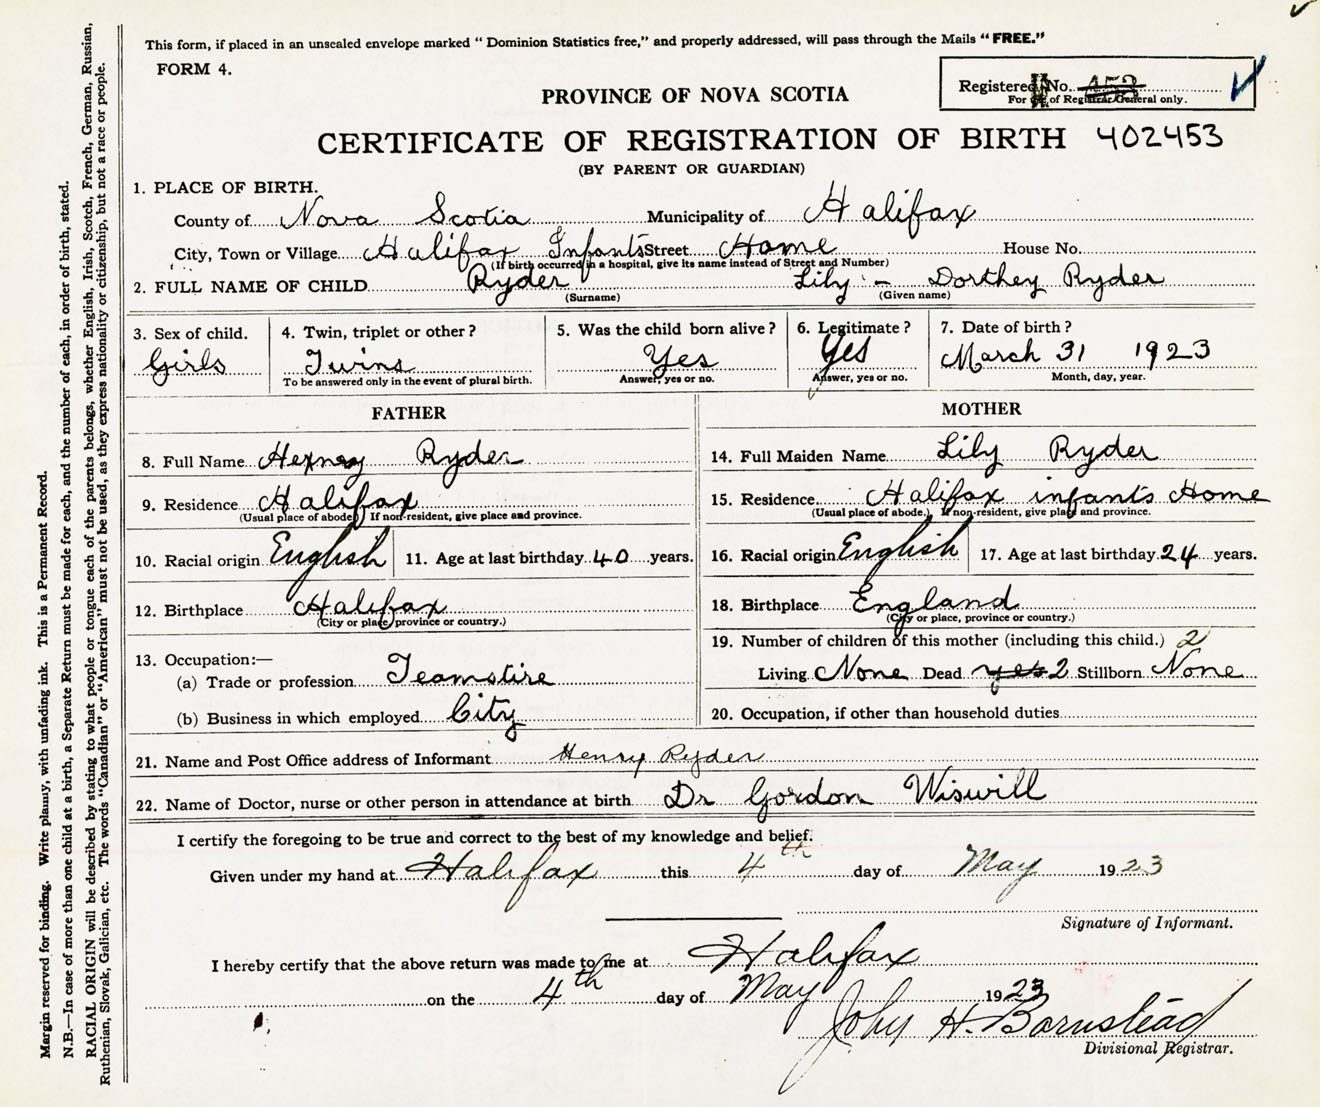 This form, if placed in an unsealed envelope marked "Dominion Statistics free," and properly addressed, will pass through the Mails "FREE."
FORM 4.
Registered No. 453
For of Registrar General only.
PROVINCE OF NOVA SCOTIA
CERTIFICATE OF REGISTRATION OF BIRTH 402453
(BY PARENT OR GUARDIAN)
1. PLACE OF BIRTH.
County of Nova Scotia Municipality of Halifax
City, Town or Village Halifax Infants Street Home House No.
(If birth occurred in a hospital, give its name instead of Street and Number)
2. FULL NAME OF CHILD Ryder Lily - Dorthey Ryder
(Surname) (Given name)
3. Sex of child. 4. Twin, triplet or other? 5. Was the child born alive? 6. Legitimate? 7. Date of birth?
Girls Twins Yes Yes March 31 1923
To be answered only in the event of plural birth. Answer, yes or no. Answer, yes or no. Month, day, year.
FATHER
8. Full Name Henry Ryder
9. Residence Halifax
(Usual place of abode.) If non-resident, give place and province.
10. Racial origin English 11. Age at last birthday 40 years.
12. Birthplace Halifax
(City or place, province or country.)
13. Occupation:—
(a) Trade or profession Teamstire
(b) Business in which employed City
MOTHER
14. Full Maiden Name Lily Ryder
15. Residence Halifax infants Home
(Usual place of abode.) If non-resident, give place and province.
16. Racial origin English 17. Age at last birthday 24 years.
18. Birthplace England
(City or place, province or country.)
19. Number of children of this mother (including this child.) 2
Living None Dead yes 2 Stillborn None
20. Occupation, if other than household duties
21. Name and Post Office address of Informant Henry Ryder
22. Name of Doctor, nurse or other person in attendance at birth Dr Gordon Wiswill
I certify the foregoing to be true and correct to the best of my knowledge and belief.
Given under my hand at Halifax this 4th day of May 1923
Signature of Informant.
I hereby certify that the above return was made to me at Halifax
on the 4th day of May 1923
John H. Barnstead
Divisional Registrar.
Margin reserved for binding. Write plainly, with unfading ink. This is a Permanent Record.
N.B.—In case of more than one child at a birth, a Separate Return must be made for each, and the number of each, in order of birth, stated.
RACIAL ORIGIN will be described by stating to what people or tongue each of the parents belongs, whether English, Irish, Scotch, French, German, Russian,
Ruthenian, Slovak, Galician, etc. The words "Canadian" or "American" must not be used, as they express nationality or citizenship, but not a race or people.